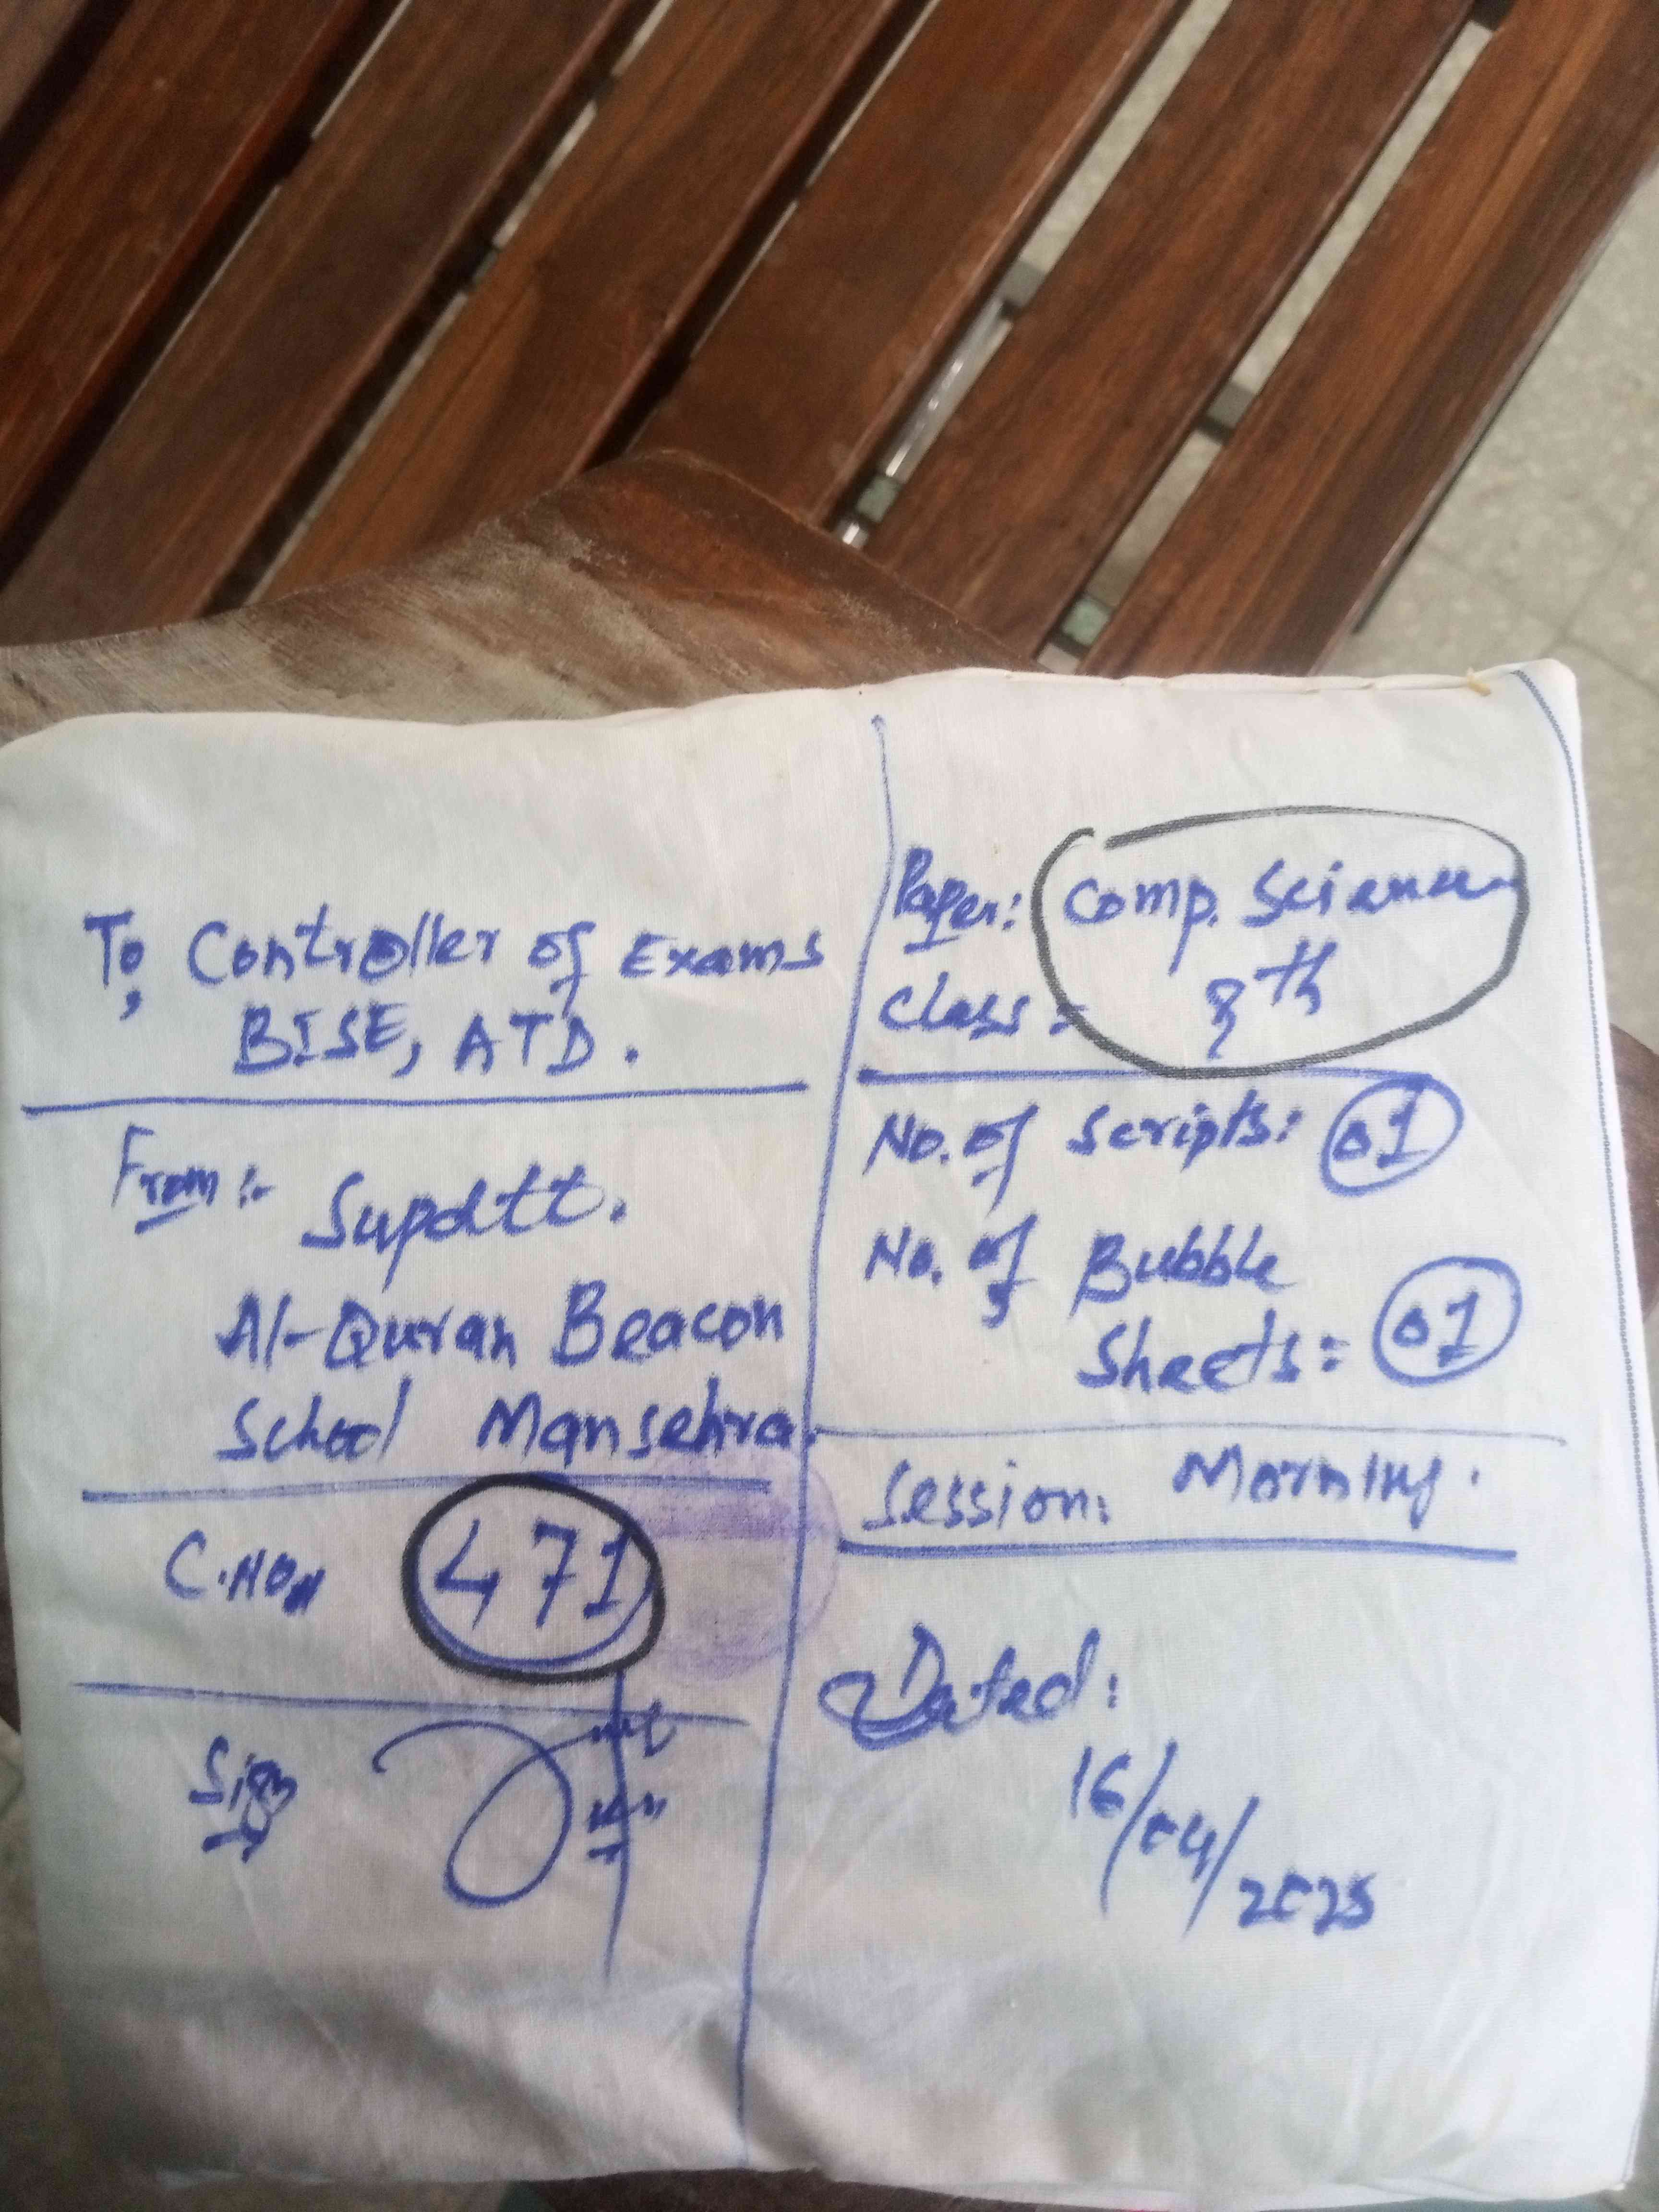 To, Controller of Exams
BISE, ATD.
From :-
Supdtt.
Al-Quran Beacon
School Mansehra.
C.No
471
Sign
Paper: Comp. Science
Class: 8th
No. of Scripts: 01
No. of Bubble
Sheets: 01
Session: Morning.
Dated:
16/04/2025